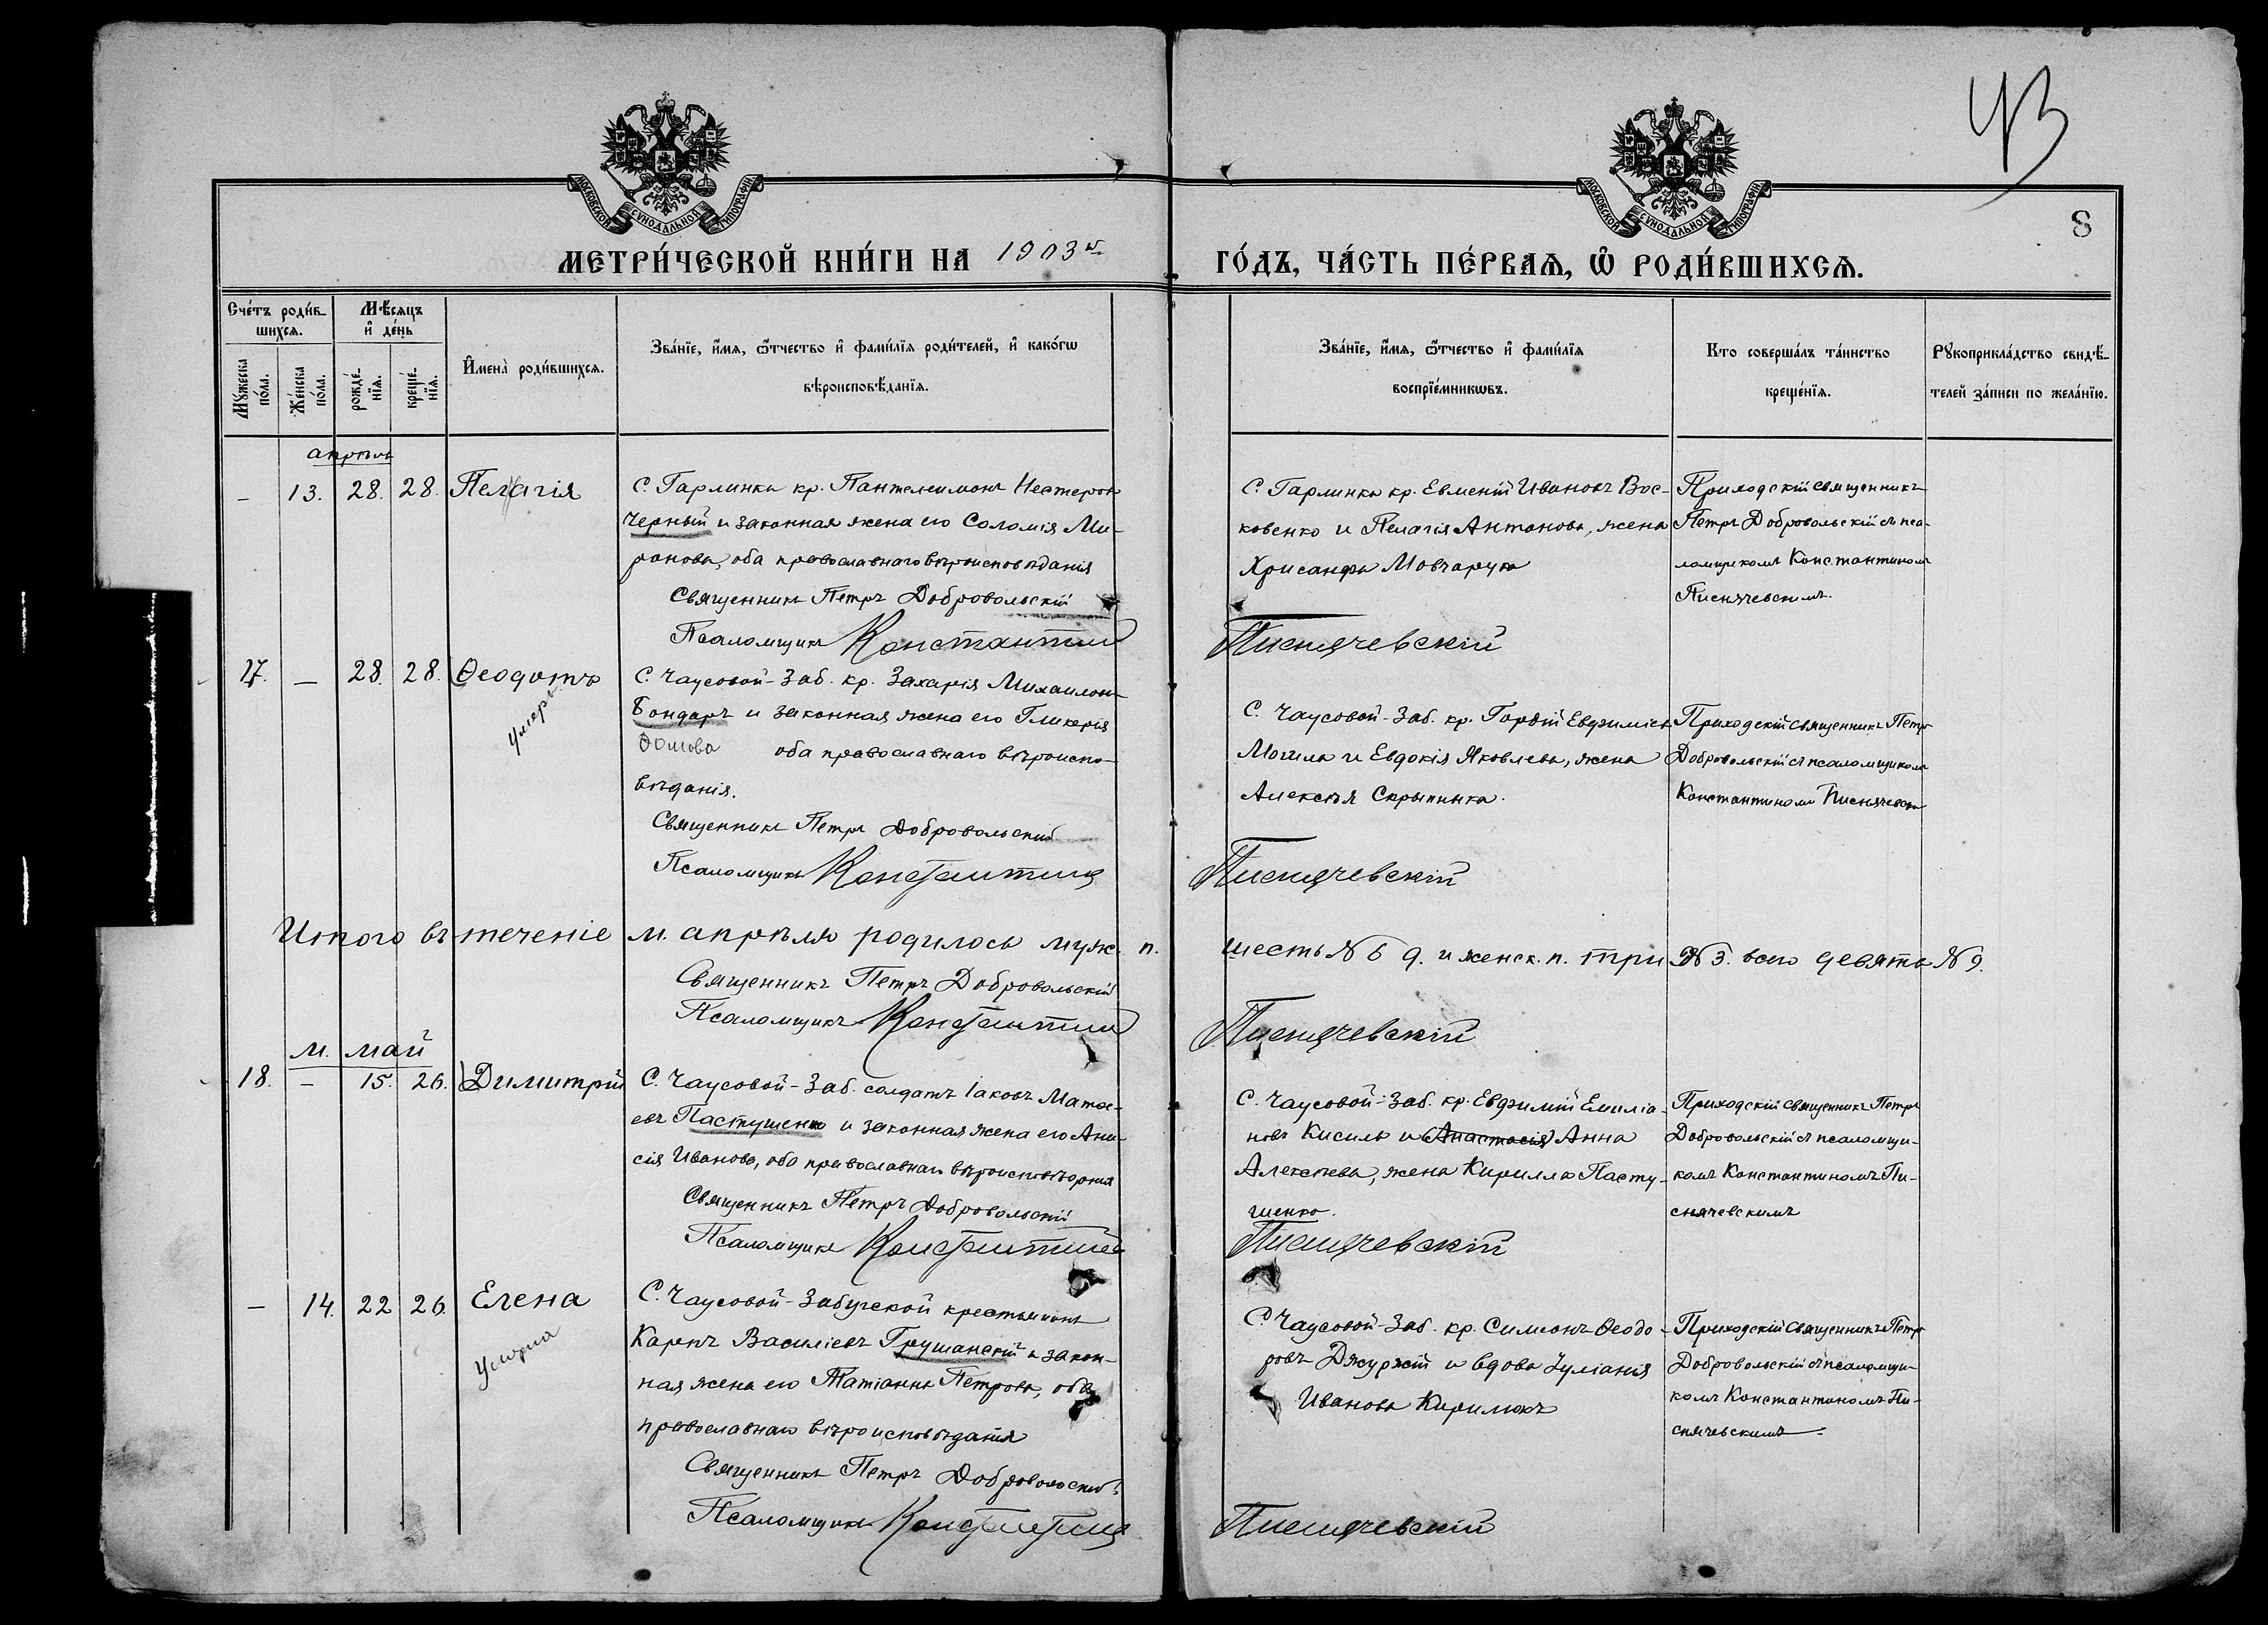 43
8
МОСКОВСКОЙ СѴНОДАЛЬНОЙ ТИПОГРАФІИ
МОСКОВСКОЙ СѴНОДАЛЬНОЙ ТИПОГРАФІИ
МЕТРИ́ЧЕСКОЙ КНИ́ГИ НА 1903 й
ГО́ДЪ, ЧА́СТЬ ПЕ́РВАѦ, Ѽ РОДИ́ВШИХСѦ.
Сче́тъ роди́вшихсѧ.
Мꙋ́жеска по́ла.
Же́нска по́ла.
Мѣ́сяцъ и҆ де́нь
рожде́нїѧ.
креще́нїѧ.
И҆мена̀ роди́вшихсѧ.
Зва́нїе, и҆́мѧ, ѻ҆́тчество и҆ фами́лїѧ роди́телей, и҆ како́гѡ
вѣроисповѣ́данїѧ.
Зва́нїе, и҆́мѧ, ѻ҆́тчество и҆ фами́лїѧ
воспрїе́мникѡвъ.
Кто соверша́лъ та́инство
креще́нїѧ.
Рꙋкоприкла́дство свидѣ́-
телей за́писи по жела́нїю.
апрѣль
– 13. 28. 28. Пелагія
С. Гарлинки кр. Пантелеимонъ Нестеровъ
Черный и законная жена его Соломія Ми-
ронова, оба православнаго вѣроисповѣданія
Священникъ Петръ Добровольскій
Псаломщикъ Константинъ Писнячевскій
С. Гарлинки кр. Евменій Ивановъ Вос-
ковенко и Пелагія Антонова, жена
Хрисанфа Мовчарука
Приходскій священникъ
Петръ Добровольскій съ пса-
ломщикомъ Константиномъ
Писнячевскимъ.
17. – 28. 28. Ѳеодотъ
умеръ
С. Чаусовой-Заб. кр. Захарія Михаиловъ
Бондарь и законная жена его Гликерія
Ѳомова оба православнаго вѣроиспо-
вѣданія.
Священникъ Петръ Добровольскій
Псаломщикъ Константинъ Писнячевскій
С. Чаусовой-Заб. кр. Гордій Евфиміевъ
Могила и Евдокія Яковлева, жена
Алексѣя Скрыпника.
Приходскій священникъ Петръ
Добровольскій съ псаломщикомъ
Константиномъ Писнячевск
Итого въ теченіе м. апрѣля родилось муж. п. шесть № 6 д. и женск. п. три № 3. всего девять № 9.
Священникъ Петръ Добровольскій
Псаломщикъ Константинъ Писнячевскій
м. май
18. – 15. 26. Димитрій
С. Чаусовой-Заб. солдатъ Іаковъ Матѳе-
евъ Пастушенко и законная жена его Ани-
сія Иванова, оба православнаго вѣроисповѣданія
Священникъ Петръ Добровольскій
Псаломщикъ Константинъ Писнячевскій
С. Чаусовой-Заб. кр. Евфимій Емиліа-
новъ Кисиль и (Анастасія) Анна
Алексѣева, жена Кирилла Пасту-
шенко.
Приходскій священникъ Петръ
Добровольскій съ псаломщи-
комъ Константиномъ Пи-
снячевскимъ
– 14. 22 26. Елена
умерла
С. Чаусовой-Забугской крестьянинъ
Карпъ Василіевъ Грушанскій и закон-
ная жена его Татіанна Петрова, оба
православнаго вѣроисповѣданія
Священникъ Петръ Добровольскій
Псаломщикъ Константинъ Писнячевскій
С. Чаусовой-Заб. кр. Симеонъ Ѳеодо-
ровъ Джуржій и вдова Іуліанія
Иванова Кирилюкъ
Приходскій священникъ Петръ
Добровольскій съ псаломщи-
комъ Константиномъ Пи-
снячевскимъ